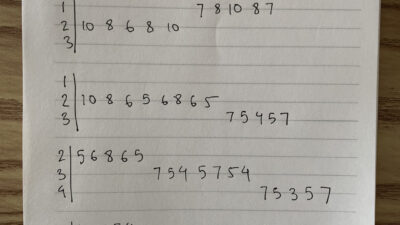 1 7 8 10 8 7
2 10 8 6 8 10
3
1
2 10 8 6 5 6 8 6 5
3 7 5 4 5 7
2 5 6 8 6 5
3 7 5 4 5 7 5 4
4 7 5 3 5 7